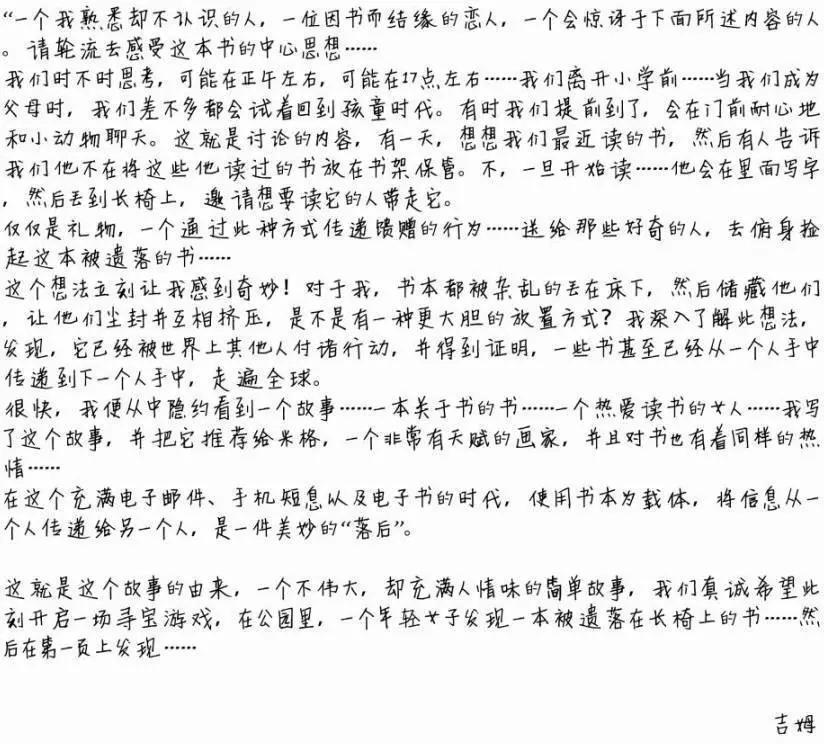 “一个我熟悉却不认识的人，一位因书而结缘的恋人，一个会惊讶于下面所述内容的人
。请轮流去感受这本书的中心思想……
我们时不时思考，可能在正午左右，可能在17点左右……我们离开小学前……当我们成为
父母时，我们差不多都会试着回到孩童时代。有时我们提前到了，会在门前耐心地
和小动物聊天。这就是讨论的内容，有一天，想想我们最近读的书，然后有人告诉
我们他不在将这些他读过的书放在书架保管。不，一旦开始读……他会在里面写字
，然后丢到长椅上，邀请想要读它的人带走它。
仅仅是礼物，一个通过此种方式传递馈赠的行为……送给那些好奇的人，去俯身捡
起这本被遗落的书……
这个想法立刻让我感到奇妙！对于我，书本都被杂乱的丢在床下，然后储藏他们
，让他们尘封并互相挤压，是不是有一种更大胆的放置方式？我深入了解此想法，
发现，它已经被世界上其他人付诸行动，并得到证明，一些书甚至已经从一个人手中
传递到下一个人手中，走遍全球。
很快，我便从中隐约看到一个故事……一本关于书的书……一个热爱读书的女人……我写
了这个故事，并把它推荐给米格，一个非常有天赋的画家，并且对书也有着同样的热
情……
在这个充满电子邮件、手机短息以及电子书的时代，使用书本为载体，将信息从一
个人传递给另一个人，是一件美妙的“落后”。
这就是这个故事的由来，一个不伟大，却充满人情味的简单故事，我们真诚希望此
刻开启一场寻宝游戏，在公园里，一个年轻女子发现一本被遗落在长椅上的书……然
后在第一页上发现……
吉姆